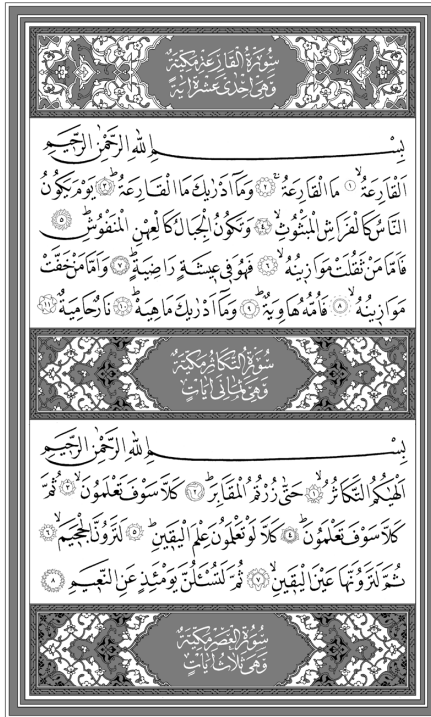 سُورَةُ الْقَارِعَةِ مَكِّيَّةٌ
وَهِيَ اِحْدٰى عَشْرَةَ اٰيَةً
بِسْمِ اللهِ الرَّحْمٰنِ الرَّحٖيمِ
اَلْقَارِعَةُۙ ﴿١﴾ مَا الْقَارِعَةُۚ ﴿٢﴾ وَمَٓا اَدْرٰيكَ مَا الْقَارِعَةُۜ ﴿٣﴾ يَوْمَ يَكُونُ
النَّاسُ كَالْفَرَاشِ الْمَبْثُوثِۙ ﴿٤﴾ وَتَكُونُ الْجِبَالُ كَالْعِهْنِ الْمَنْفُوشِۜ ﴿٥﴾
فَاَمَّا مَنْ ثَقُلَتْ مَوَازٖينُهُۙ ﴿٦﴾ فَهُوَ فٖي عٖيشَةٍ رَاضِيَةٍۜ ﴿٧﴾ وَاَمَّا مَنْ خَفَّتْ
مَوَازٖينُهُۙ ﴿٨﴾ فَاُمُّهُ هَاوِيَةٌۜ ﴿٩﴾ وَمَٓا اَدْرٰيكَ مَاهِيَهْۜ ﴿١٠﴾ نَارٌ حَامِيَةٌ ﴿١١﴾
سُورَةُ التَّكَاثُرِ مَكِّيَّةٌ
وَهِيَ ثَمَانٖي اٰيَاتٍ
بِسْمِ اللهِ الرَّحْمٰنِ الرَّحٖيمِ
اَلْهٰيكُمُ التَّكَاثُرُۙ ﴿١﴾ حَتّٰى زُرْتُمُ الْمَقَابِرَۜ ﴿٢﴾ كَلَّا سَوْفَ تَعْلَمُونَۙ ﴿٣﴾ ثُمَّ
كَلَّا سَوْفَ تَعْلَمُونَۜ ﴿٤﴾ كَلَّا لَوْ تَعْلَمُونَ عِلْمَ الْيَقٖينِۜ ﴿٥﴾ لَتَرَوُنَّ الْجَحٖيمَۙ ﴿٦﴾
ثُمَّ لَتَرَوُنَّهَا عَيْنَ الْيَقٖينِۙ ﴿٧﴾ ثُمَّ لَتُسْـَٔلُنَّ يَوْمَئِذٍ عَنِ النَّعٖيمِ ﴿٨﴾
سُورَةُ الْعَصْرِ مَكِّيَّةٌ
وَهِيَ ثَلَاثُ اٰيَاتٍ